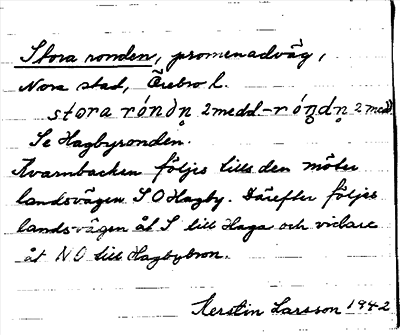 Stora ronden, promenadväg,
Nora stad, Örebro l.
stora róndn̥ 2 medd - róṇḍṇ 2 medd
Se Hagbyronden.
Kvarnbacken följes tills den möter
landsvägen S O Hagby. Därefter följes
landsvägen åt S till Haga och vidare
åt N O till Hagbybron.
Kerstin Larsson 1942